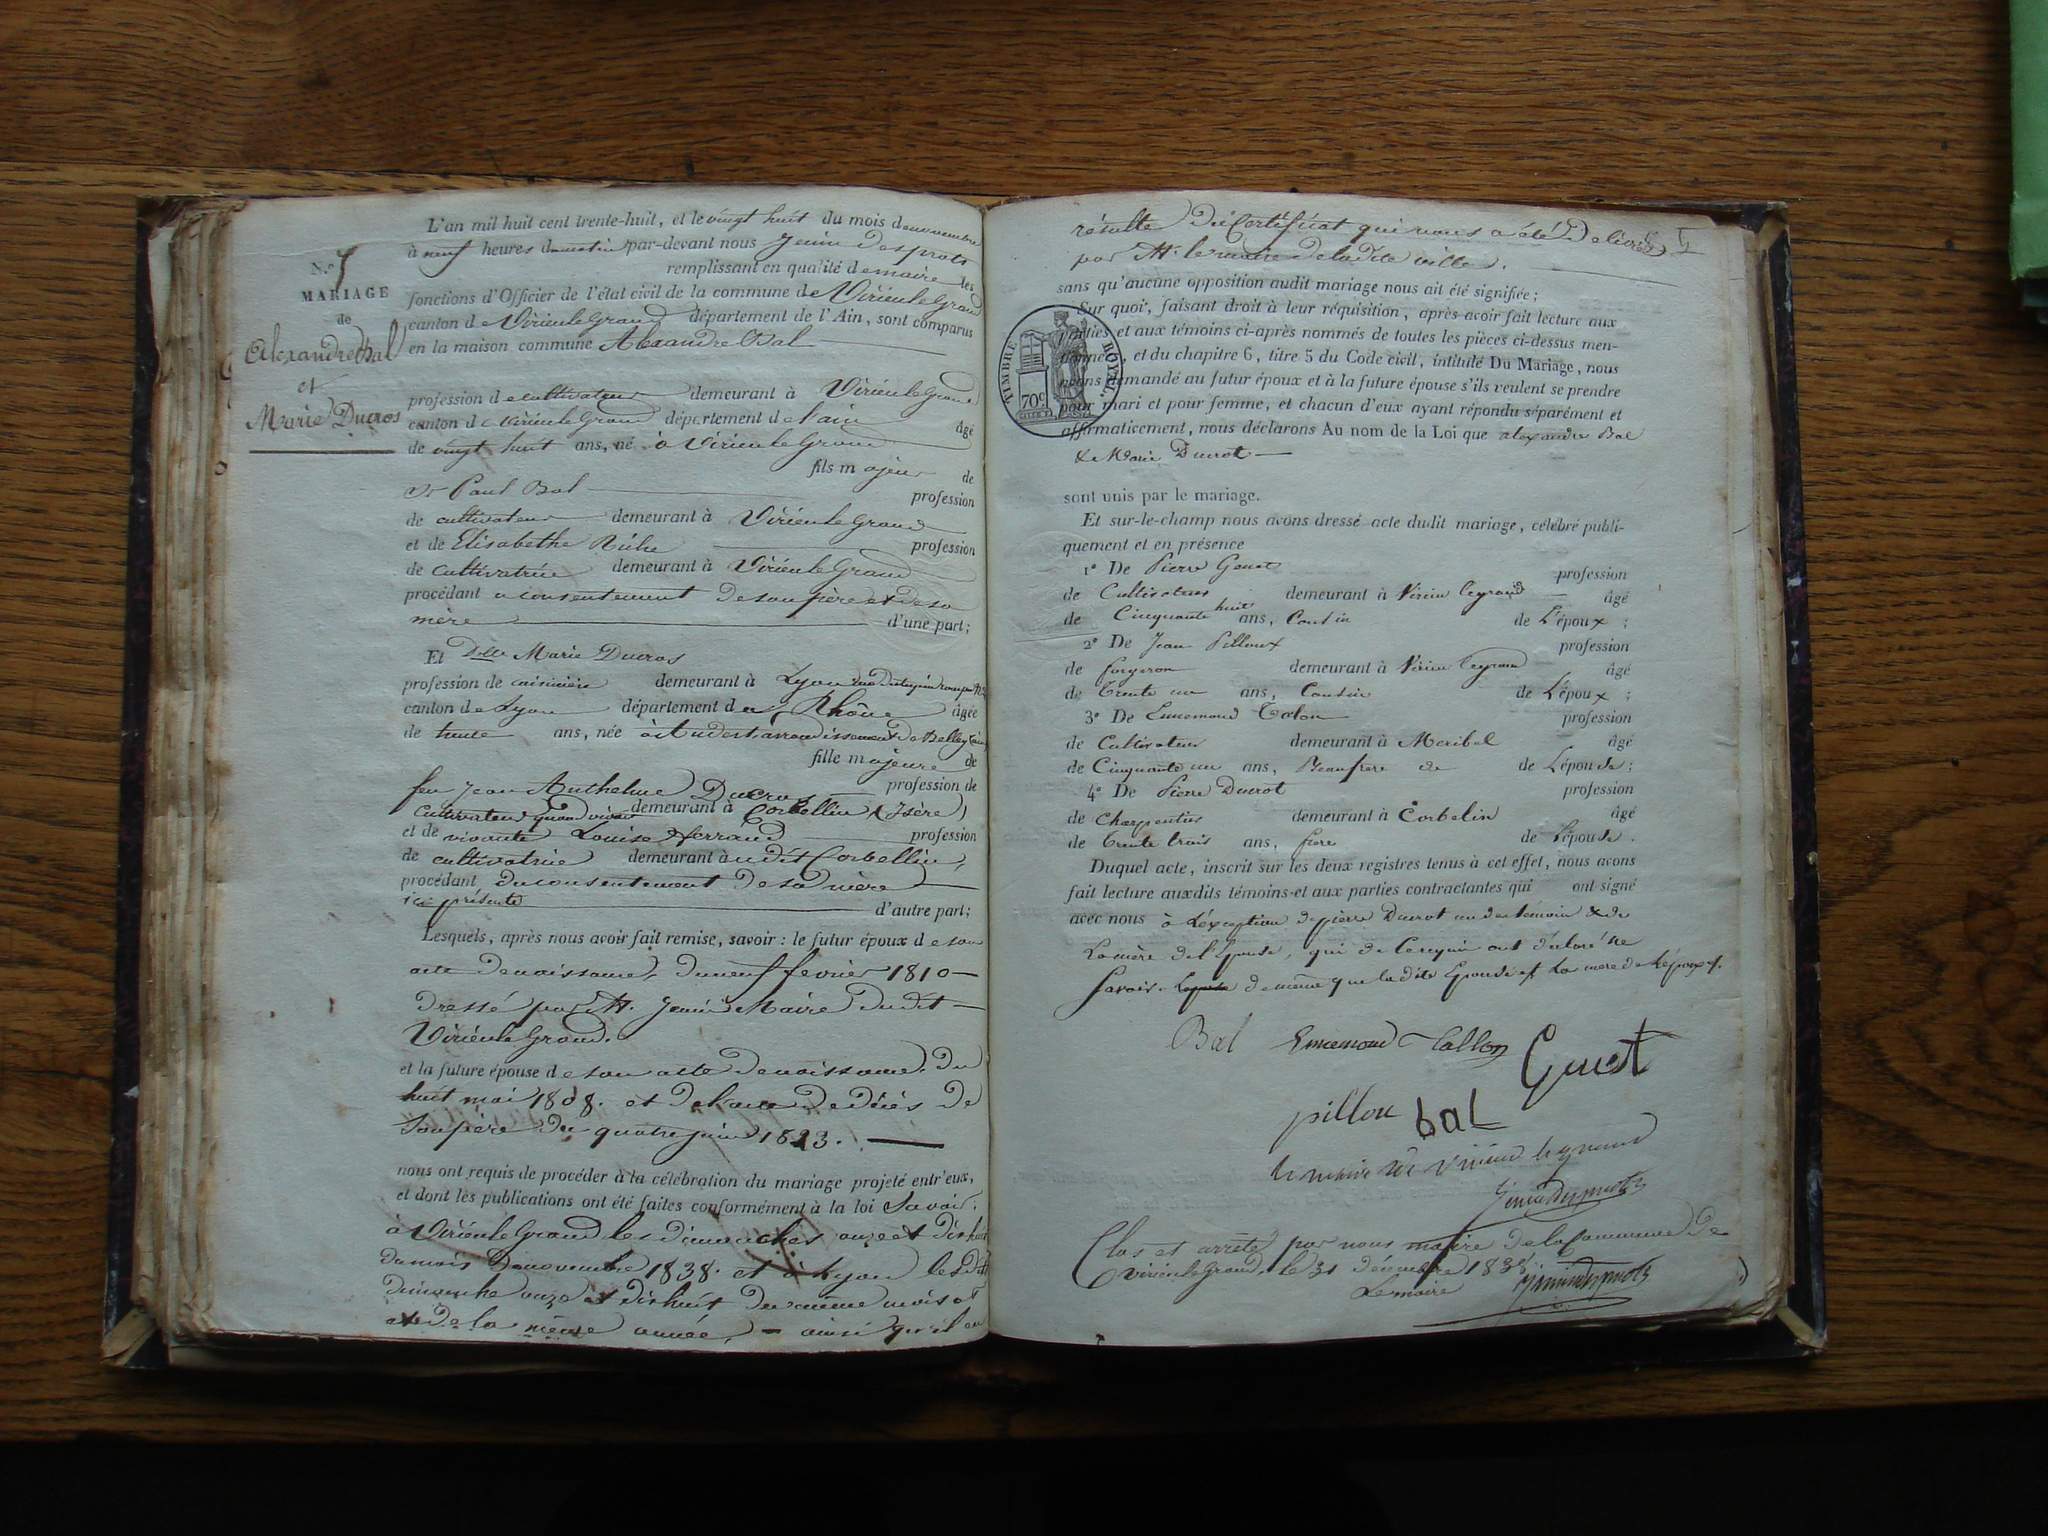 L'an mil huit cent trente-huit, et le vingt huit du mois de novembre
à neuf heures du matin par-devant nous Jenin Desprots
remplissant en qualité de maire les
fonctions d'Officier de l'état civil de la commune de Virieu le Grand
canton de Virieu le Grand département de l'Ain, sont comparus
en la maison commune Alexandre Bal
N.º 5
MARIAGE
de
Alexandre Bal
et
Marie Ducros
profession de cultivateur demeurant à Virieu le Grand
canton de Virieu le Grand département de l'ain âgé
de vingt huit ans, né à Virieu le Grand
fils majeur de
Paul Bal profession
de cultivateur demeurant à Virieu le Grand
et de Elisabethe Riche profession
de cultivatrice demeurant à Virieu le Grand
procédant consentement de son père et de sa
mère d'une part;
Et Dlle Marie Ducros
profession de cuisinière demeurant à Lyon
canton de Lyon département du Rhône âgée
de trente ans, née à arrondissement de Belley
fille majeure de
feu Jean Anthelme Ducros profession de
cultivateur quand vivait demeurant à Corbellin (Isère)
et de vivante Louise Ferrand profession
de cultivatrice demeurant audit Corbellin,
procédant du consentement de sa mère
ici présente d'autre part;
Lesquels, après nous avoir fait remise, savoir : le futur époux de son
acte de naissance, du neuf fevrier 1810
dressé par M. Jenin Maire dudit
Virieu le Grand.
et la future épouse de son acte de naissance du
huit mai 1808. et de l'acte de décès de
son père du quatre juin 1823.
nous ont requis de procéder à la célébration du mariage projeté entr'eux,
et dont les publications ont été faites conformément à la loi Savoir.
à Virieu le Grand les dimanches onze et dix huit
du mois de novembre 1838. et à Lyon les dits
dimanche onze et dix huit du même mois et
de la même année, ainsi qu'il en
résulte du Certificat qui nous a été Délivré
par M. le maire de la dite ville.
sans qu'aucune opposition audit mariage nous ait été signifiée;
Sur quoi, faisant droit à leur réquisition, après avoir fait lecture aux
parties et aux témoins ci-après nommés de toutes les pièces ci-dessus men-
tionnées et du chapitre 6, titre 5 du Code civil, intitulé Du Mariage, nous
avons demandé au futur époux et à la future épouse s'ils veulent se prendre
pour mari et pour femme, et chacun d'eux ayant répondu séparément et
affirmativement, nous déclarons Au nom de la Loi que alexandre Bal
& Marie Ducrot
TIMBRE ROYAL
70c.
sont unis par le mariage.
Et sur-le-champ nous avons dressé acte dudit mariage, célébré publi-
quement et en présence
1º De Pierre Genet profession
de Cultivateur demeurant à Virieu legrand âgé
de Cinquante huit ans, Cousin de L'époux;
2º De Jean Pilloux profession
de forgeron demeurant à Virieu legrand âgé
de Trente un ans, Cousin de L'époux;
3º De Ennemond Talon profession
de Cultivateur demeurant à Meribel âgé
de Cinquante un ans, Beaufrere de de L'épouse;
4º De Pierre Ducrot profession
de Charpentier demeurant à Corbelin âgé
de Trente trois ans, frere de L'épouse.
Duquel acte, inscrit sur les deux registres tenus à cet effet, nous avons
fait lecture auxdits témoins et aux parties contractantes qui ont signé
avec nous à L'éxception de pierre Ducrot un des témoin & de
La mère de l'Epouse, qui de Ce requis ont déclaré ne
Savoir. de même que la dite Epouse et La mere de L'époux.
Bal Ennemond Tallon Genest
pillou bal
le maire de virieu le grand
Jenin Desprots
Clos et arrêté par nous maire de la Commune de
virieu le Grand, le 31 décembre 1838
Le maire Jenin Desprots